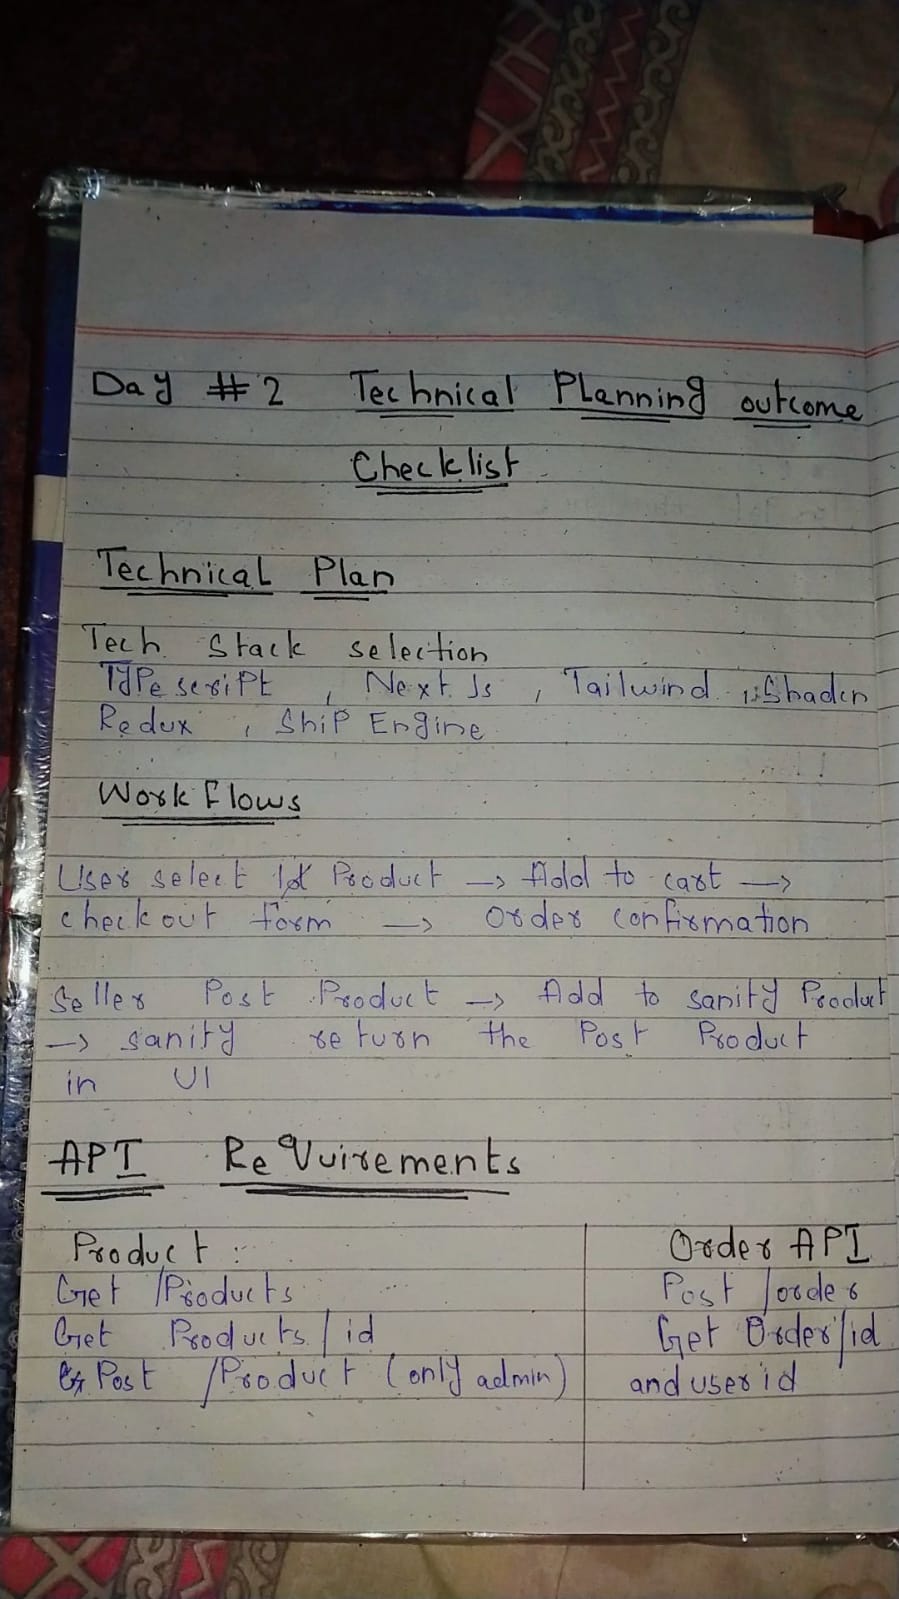 Day #2 Technical Planning outcome
Checklist
Technical Plan
Tech Stack selection
Typescript, Next Js, Tailwind, Shadcn
Redux, Ship Engine
Work flows
User select Product → Add to cart →
checkout form → Order confirmation
Seller Post Product → Add to sanity Product
→ sanity return the Post Product
in UI
API Requirements
Product :
Get /Products
Get Products/id
Post /Product (only admin)
Order API
Post /order
Get Order/id
and user id